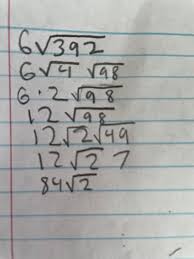 6√392
6√4 √98
6·2√98
12√98
12√2√49
12√2 7
84√2